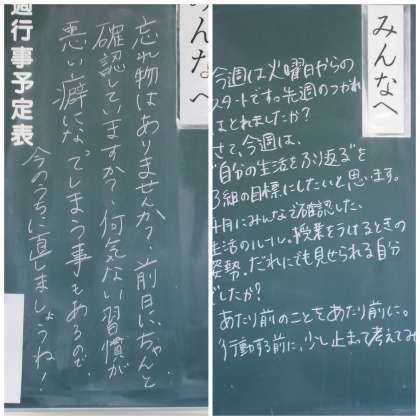 週行事予定表
みんなへ
忘れ物はありませんか？前日に、ちゃんと
確認していますか？何気ない習慣が
悪い癖になってしまう事もあるので、
今のうちに直しましょうね！
みんなへ
今週は火曜日からの
スタートです。先週のつかれ
はとれましたか？
さて、今週は、
"自分の生活をふり返る"を
3組の目標にしたいと思います。
4月にみんなで確認した、
生活のルール。授業をうけるときの
姿勢。だれにでも見せられる自分
でしたか？
あたり前のことをあたり前に。
行動する前に、少し止まって考えてみ